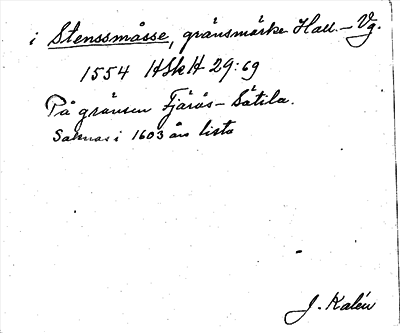 i Stenssmåsse, gränsmärke Hall. – Vg.
1554 HSkH 29:69
På gränsen Fjärås – Sätila.
Saknas i 1603 års lista
J. Kalén